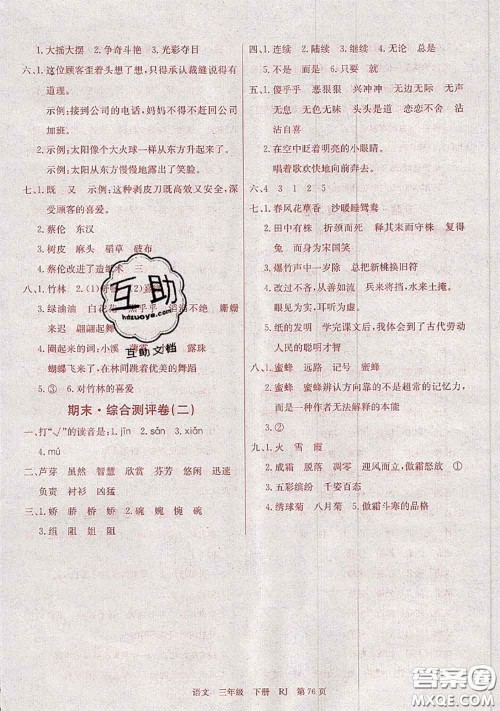 1.大摇大摆 2.争奇斗艳 3.光彩夺目
六、1.这位顾客歪着头想了想,只好承认裁缝说得有
道理。
示例:接到公司的电话,妈妈不得不赶回公司
加班。
2.示例:太阳像个大火球一样从东方升起来了。
示例:太阳从东方慢慢地露出了笑脸。
七、1.既 又 示例:这种剥皮刀既高效又安全,深
受顾客的喜爱。
2.蔡伦 东汉
3.树皮 麻头 稻草 破布
4.蔡伦改进了造纸术 三
八、1.竹林 2.(1)
3.绿油油 白花花 绵绵不绝 姗姗
来迟 翩翩起舞
4.圈起来的词:小溪 露珠
蝴蝶飞来了,在林间跳着优美的舞蹈
5.③ 6.对竹林的喜爱
互助
hdzuoye.com
互助文档
期末·综合测评卷(二)
一、打“√”的读音是:1.jīn 2.sǎn 3.xiǎn
4.mú
二、芦芽 虽然 智慧 欣赏 芬芳 悠闲 迅速
负责 衬衫 凶猛
三、1.娇 骄 桥 轿 2.碗 婉 惋 豌
3.组 姐 阻 阻
四、1.连续 2.陆续 3.继续 4.无论 总是
5.虽然 不是 而是 6.只要 就
五、1.傻乎乎 恶狠狠 兴冲冲 无边无际 无声
无息 无色无味 头头是道 恋恋不舍 沾
沾自喜
2.在空中眨着明亮的小眼睛。
唱着歌欢快地向前奔去。
六、4 3 1 2 5
七、1.春风花草香 沙暖睡鸳鸯
2.田中有株 折颈而死 因释其耒而守株 复得
兔 而身为宋国笑
3.爆竹声中一岁除 总把新桃换旧符
4.改过不吝,从善如流。 兵来将挡,水来土掩。
如闻其声,如见其形。 耳听为虚。
5.纸的发明 学完课文后,我体会到了古代劳动
人民的聪明才智
八、1.蜜蜂 远路 记号 蜜蜂
2.蜜蜂 蜜蜂辨认方向靠的不是超常的记忆力,
而是一种作者无法解释的本能
九、1.火 雪 霞
2.成霜 脱落 凋零 迎风而立,傲霜怒放 ①
3.五彩缤纷 千姿百态
4.绣球菊 八月菊 5.傲霜斗寒的品格
语文 三年级 下册 RJ 第76页